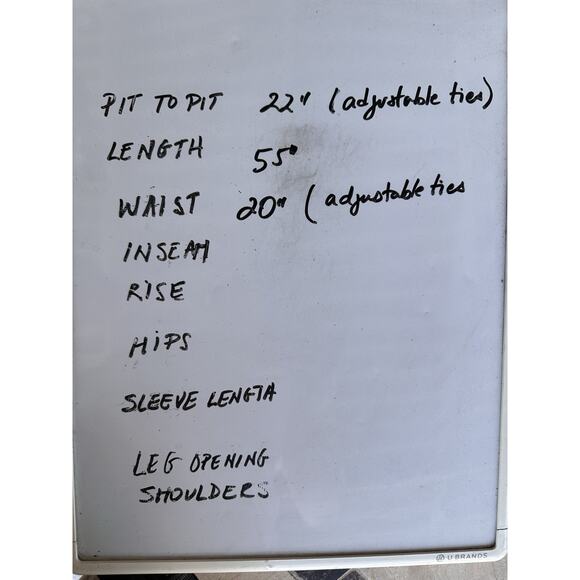 PIT TO PIT 22" (adjustable ties)
LENGTH 55"
WAIST 20" (adjustable ties
INSEAM
RISE
HIPS
SLEEVE LENGTH
LEG OPENING
SHOULDERS
U BRANDS